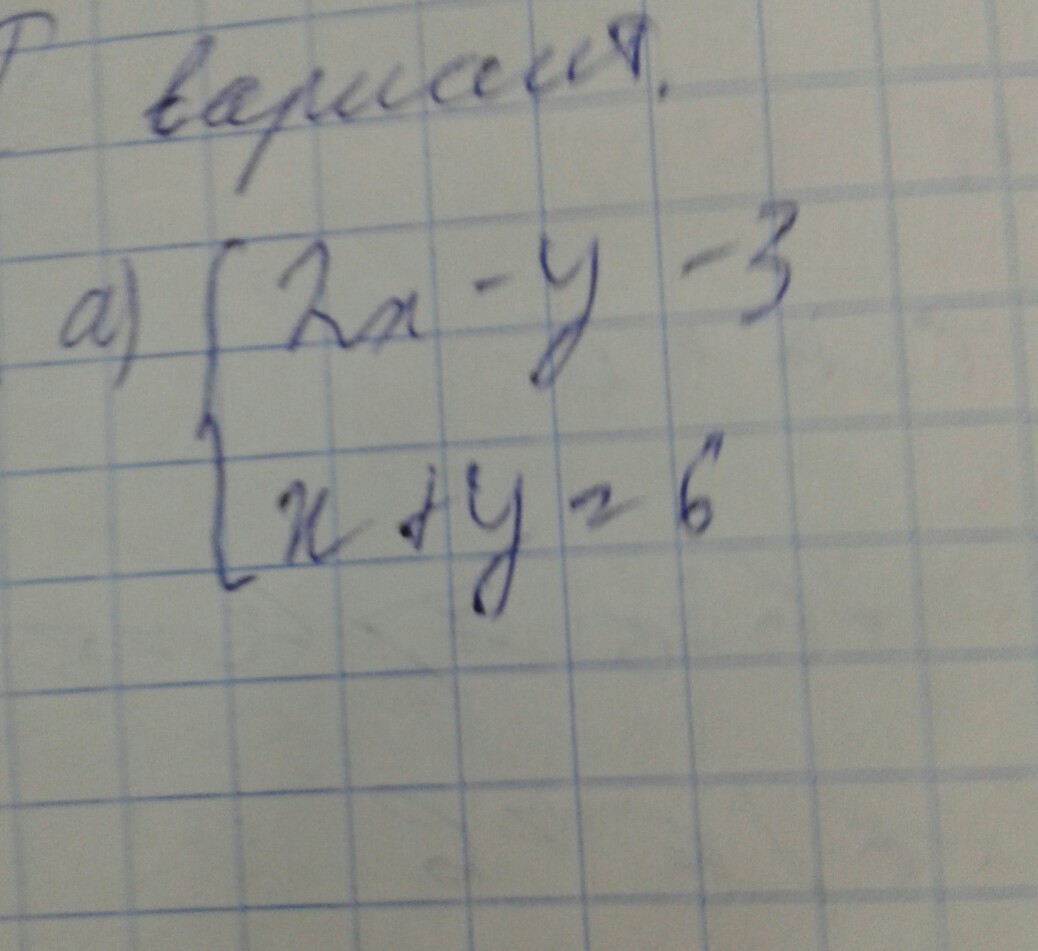 I вариант.
а) { 2x - y - 3
x + y = 6